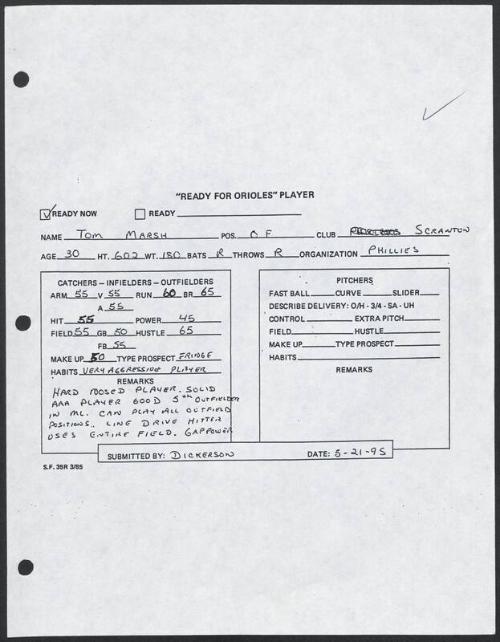 "READY FOR ORIOLES" PLAYER
✓ READY NOW READY
NAME Tom MARSH POS. OF CLUB SCRANTON
AGE 30 HT. 602 WT. 180 BATS R THROWS R ORGANIZATION PHILLIES
CATCHERS – INFIELDERS – OUTFIELDERS
ARM 55 V 55 RUN 60 BR 65
A 55
HIT 55 POWER 45
FIELD 55 GB 50 HUSTLE 65
FB 55
MAKE UP 50 TYPE PROSPECT FRINGE
HABITS VERY AGGRESSIVE PLAYER
REMARKS
HARD NOSED PLAYER. SOLID
AAA PLAYER GOOD 5TH OUTFIELDER
IN ML. CAN PLAY ALL OUTFIELD
POSITIONS. LINE DRIVE HITTER
USES ENTIRE FIELD. GAP POWER
PITCHERS
FAST BALL CURVE SLIDER
DESCRIBE DELIVERY: O/H - 3/4 - SA - UH
CONTROL EXTRA PITCH
FIELD HUSTLE
MAKE UP TYPE PROSPECT
HABITS
REMARKS
SUBMITTED BY: DICKERSON DATE: 5-21-95
S.F. 35R 3/85